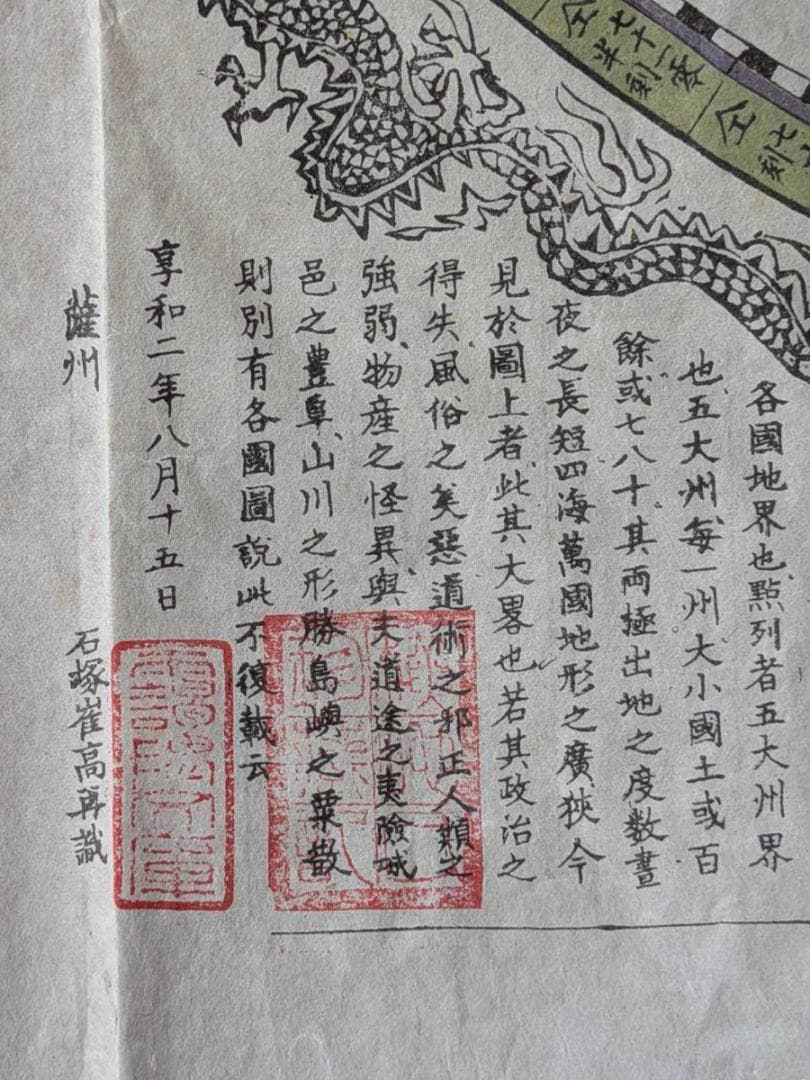 各國地界也、點列者五大州界
也、五大州、每一州大小國土或百
餘或七八十其両極出地之度数晝
夜之長短四海萬國地形之廣狹今
見於圖上者、此其大畧也若其政治之
得失、風俗之美惡、道術之邪正人類之
強弱、物産之怪異與夫道途之夷險城
邑之豊阜、山川之形勝島嶼之粟散
則別有各國圖說此不復載云
享和二年八月十五日
薩州
石塚崔高再識
仝
七十一零
半刻
仝